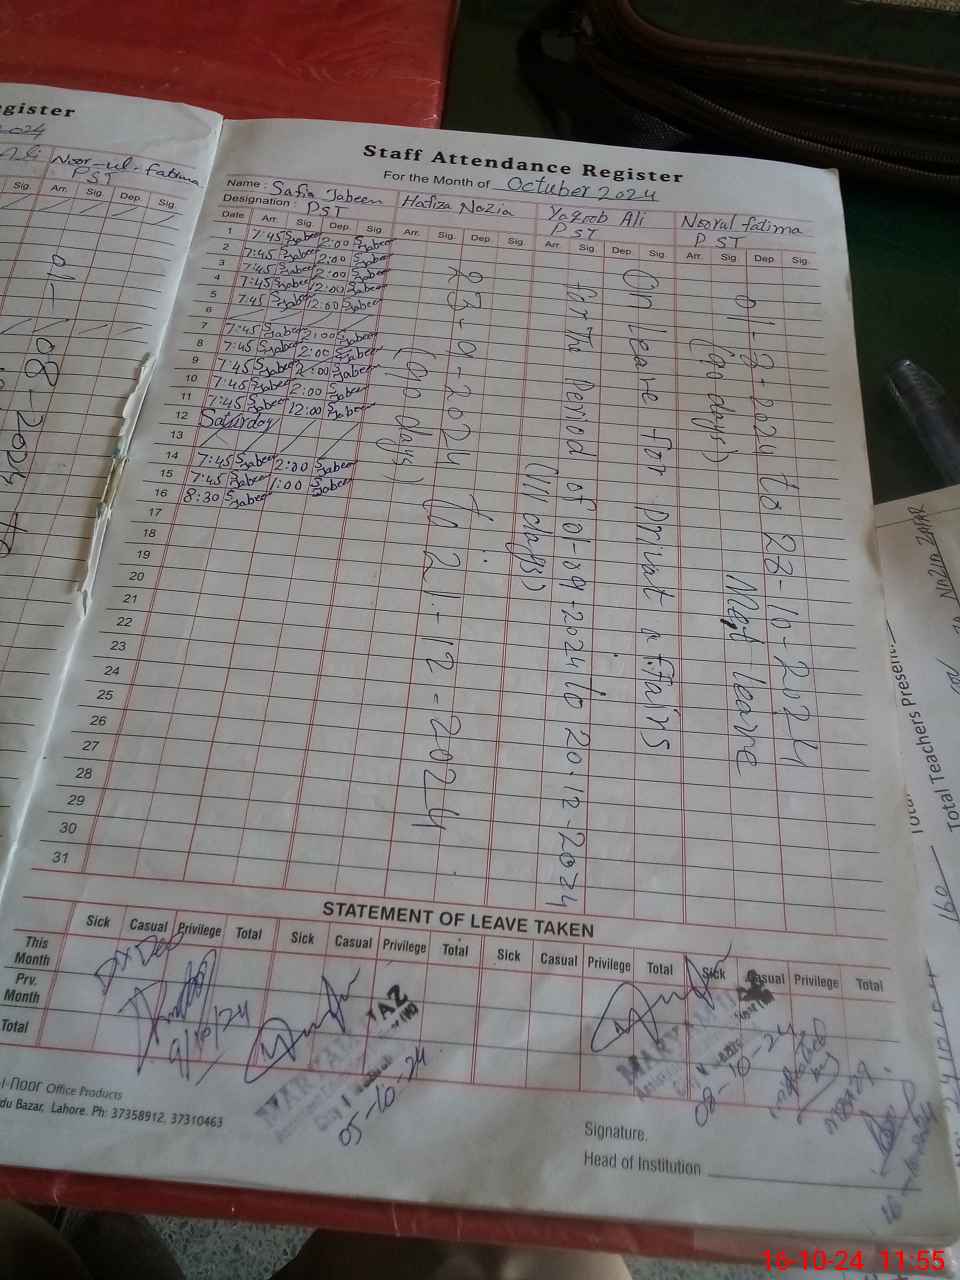 egister
2024
Noor-ul-fatima
PST
Sig. Arr. Sig. Dep. Sig.
01-08-2024
Staff Attendance Register
For the Month of Octuber 2024
Name : Safia Jabeen Hafiza Nazia Yaqoob Ali Noorul fatima
Designation : PST PST PST
Date Arr. Sig. Dep. Sig. Arr. Sig. Dep. Sig. Arr. Sig. Dep. Sig. Arr. Sig. Dep. Sig.
1 7:45 SJabeen 2:00 SJabeen
2 7:45 SJabeen 2:00 SJabeen
3 7:45 SJabeen 2:00 SJabeen
4 7:45 SJabeen 2:00 SJabeen
5 7:45 SJabeen 12:00 SJabeen
6
7 7:45 SJabeen 2:00 SJabeen
8 7:45 SJabeen 2:00 SJabeen
9 7:45 SJabeen 2:00 SJabeen
10 7:45 SJabeen 2:00 SJabeen
11 7:45 SJabeen 12:00 SJabeen
12 Saturday
13
14 7:45 SJabeen 2:00 SJabeen
15 7:45 SJabeen 1:00 SJabeen
16 8:30 SJabeen
17
18
19
20
21
22
23
24
25
26
27
28
29
30
31
23-9-2024 to 21-12-2024
(90 days)
On leave for privat affairs
for the period of 01-09-2024 to 20-12-2024
(111 days)
01-3-2024 to 28-10-2024
Met leave
STATEMENT OF LEAVE TAKEN
Sick Casual Privilege Total Sick Casual Privilege Total Sick Casual Privilege Total Sick Casual Privilege Total
This Month
Prv. Month
Total
9/10/24
05-10-24
08-10-24
l-noor Office Products
du Bazar, Lahore. Ph: 37358912, 37310463
Signature.
Head of Institution
Total Teachers Present
NAZIA ZAFAR
16-10-24 11:55